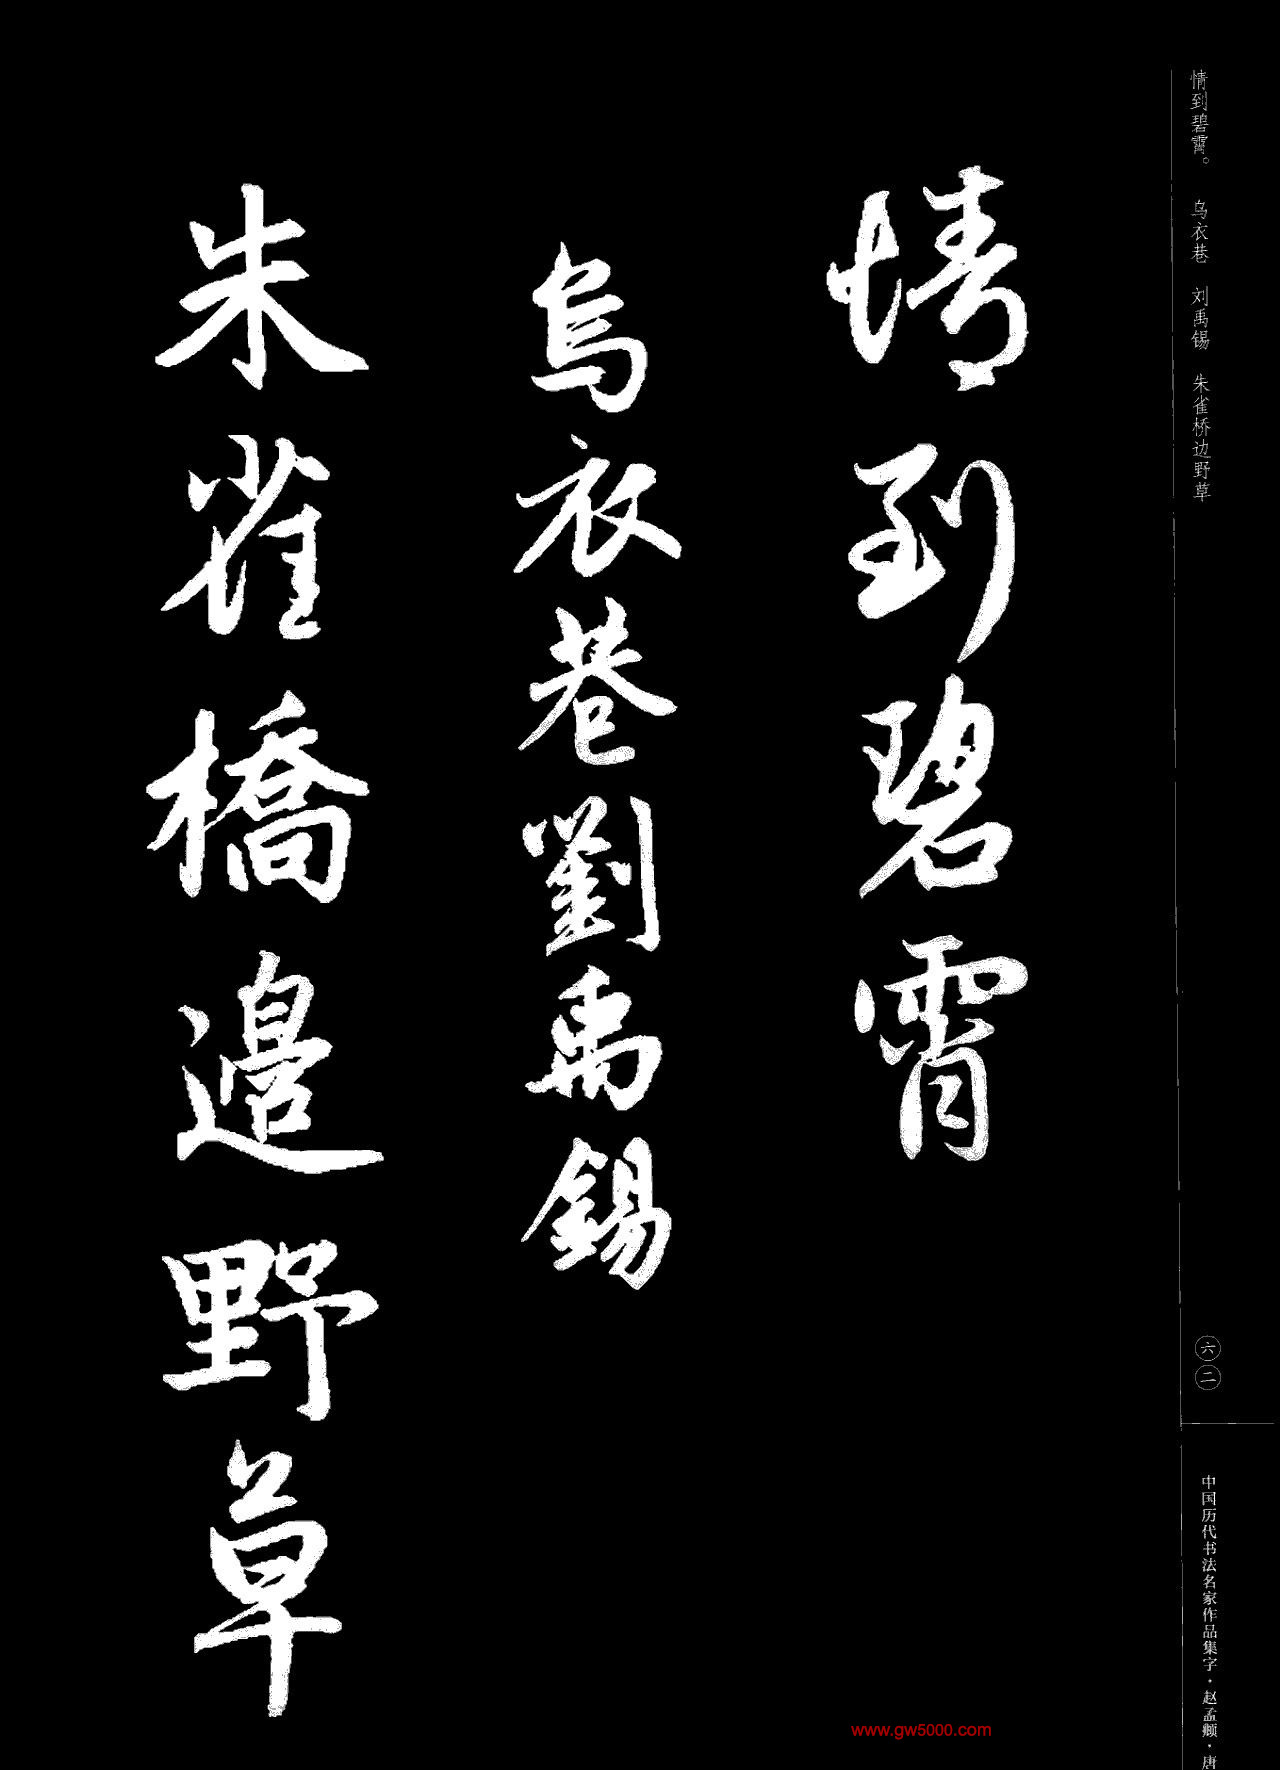 情到碧霄。 乌衣巷 刘禹锡 朱雀桥边野草
情到碧霄
烏衣巷劉禹錫
朱雀橋邊野草
六二
中国历代书法名家作品集字·赵孟頫·唐
www.gw5000.com